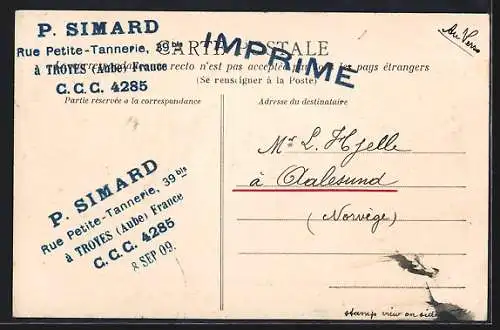 P. SIMARD
Rue Petite-Tannerie, 39 bis
à TROYES (Aube) France
C. C. C. 4285
CARTE POSTALE
IMPRIME
au Verso
recto n'est pas acceptée par tous les pays étrangers
(Se renseigner à la Poste)
Partie réservée à la correspondance
Adresse du destinataire
Mr L. Hjelle
à Aalesund
(Norvège)
P. SIMARD
Rue Petite-Tannerie, 39 bis
à TROYES (Aube) France
C. C. C. 4285
8 SEP 09.
stamp view on side